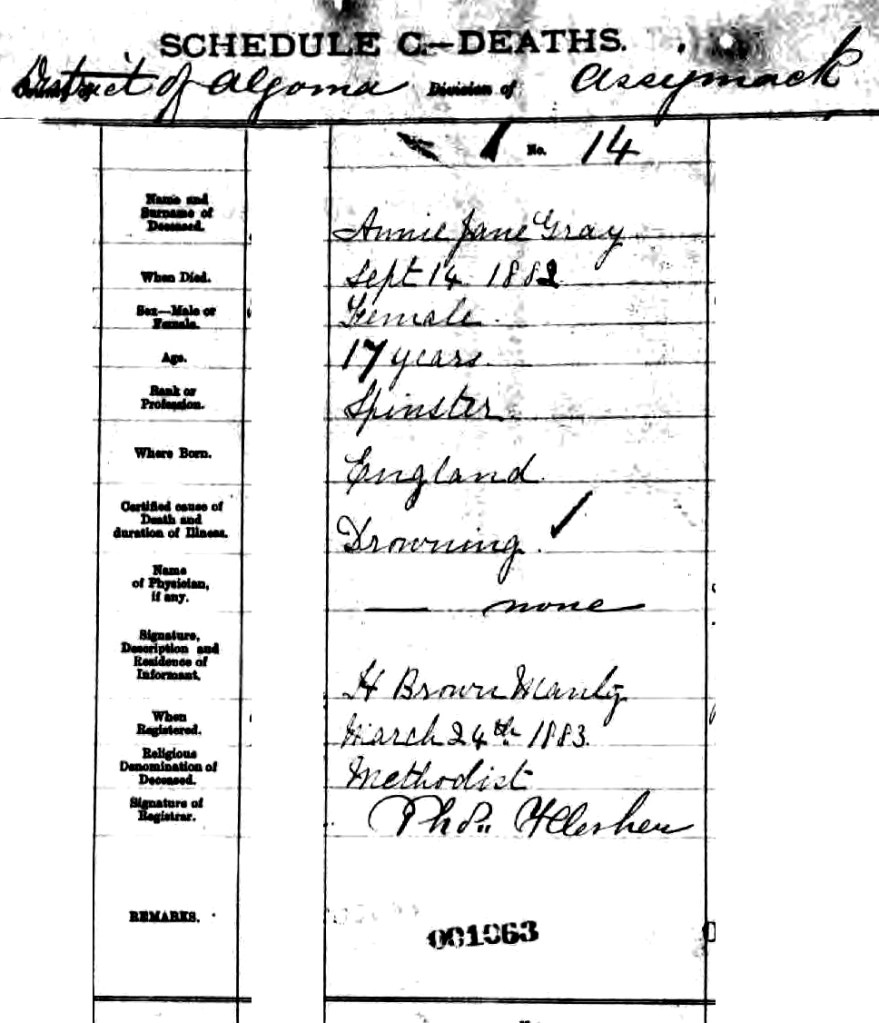 SCHEDULE C.—DEATHS.
District of Algoma Division of Assiginack
No. 14
Name and Surname of Deceased. Annie Jane Gray
When Died. Sept 14 1882
Sex—Male or Female. Female
Age. 17 years
Rank or Profession. Spinster
Where Born. England
Certified cause of Death and duration of Illness. Drowning
Name of Physician, if any. — none
Signature, Description and Residence of Informant. H Brown
When Registered. March 24th 1883.
Religious Denomination of Deceased. Methodist
Signature of Registrar. Thos.
REMARKS. 001063